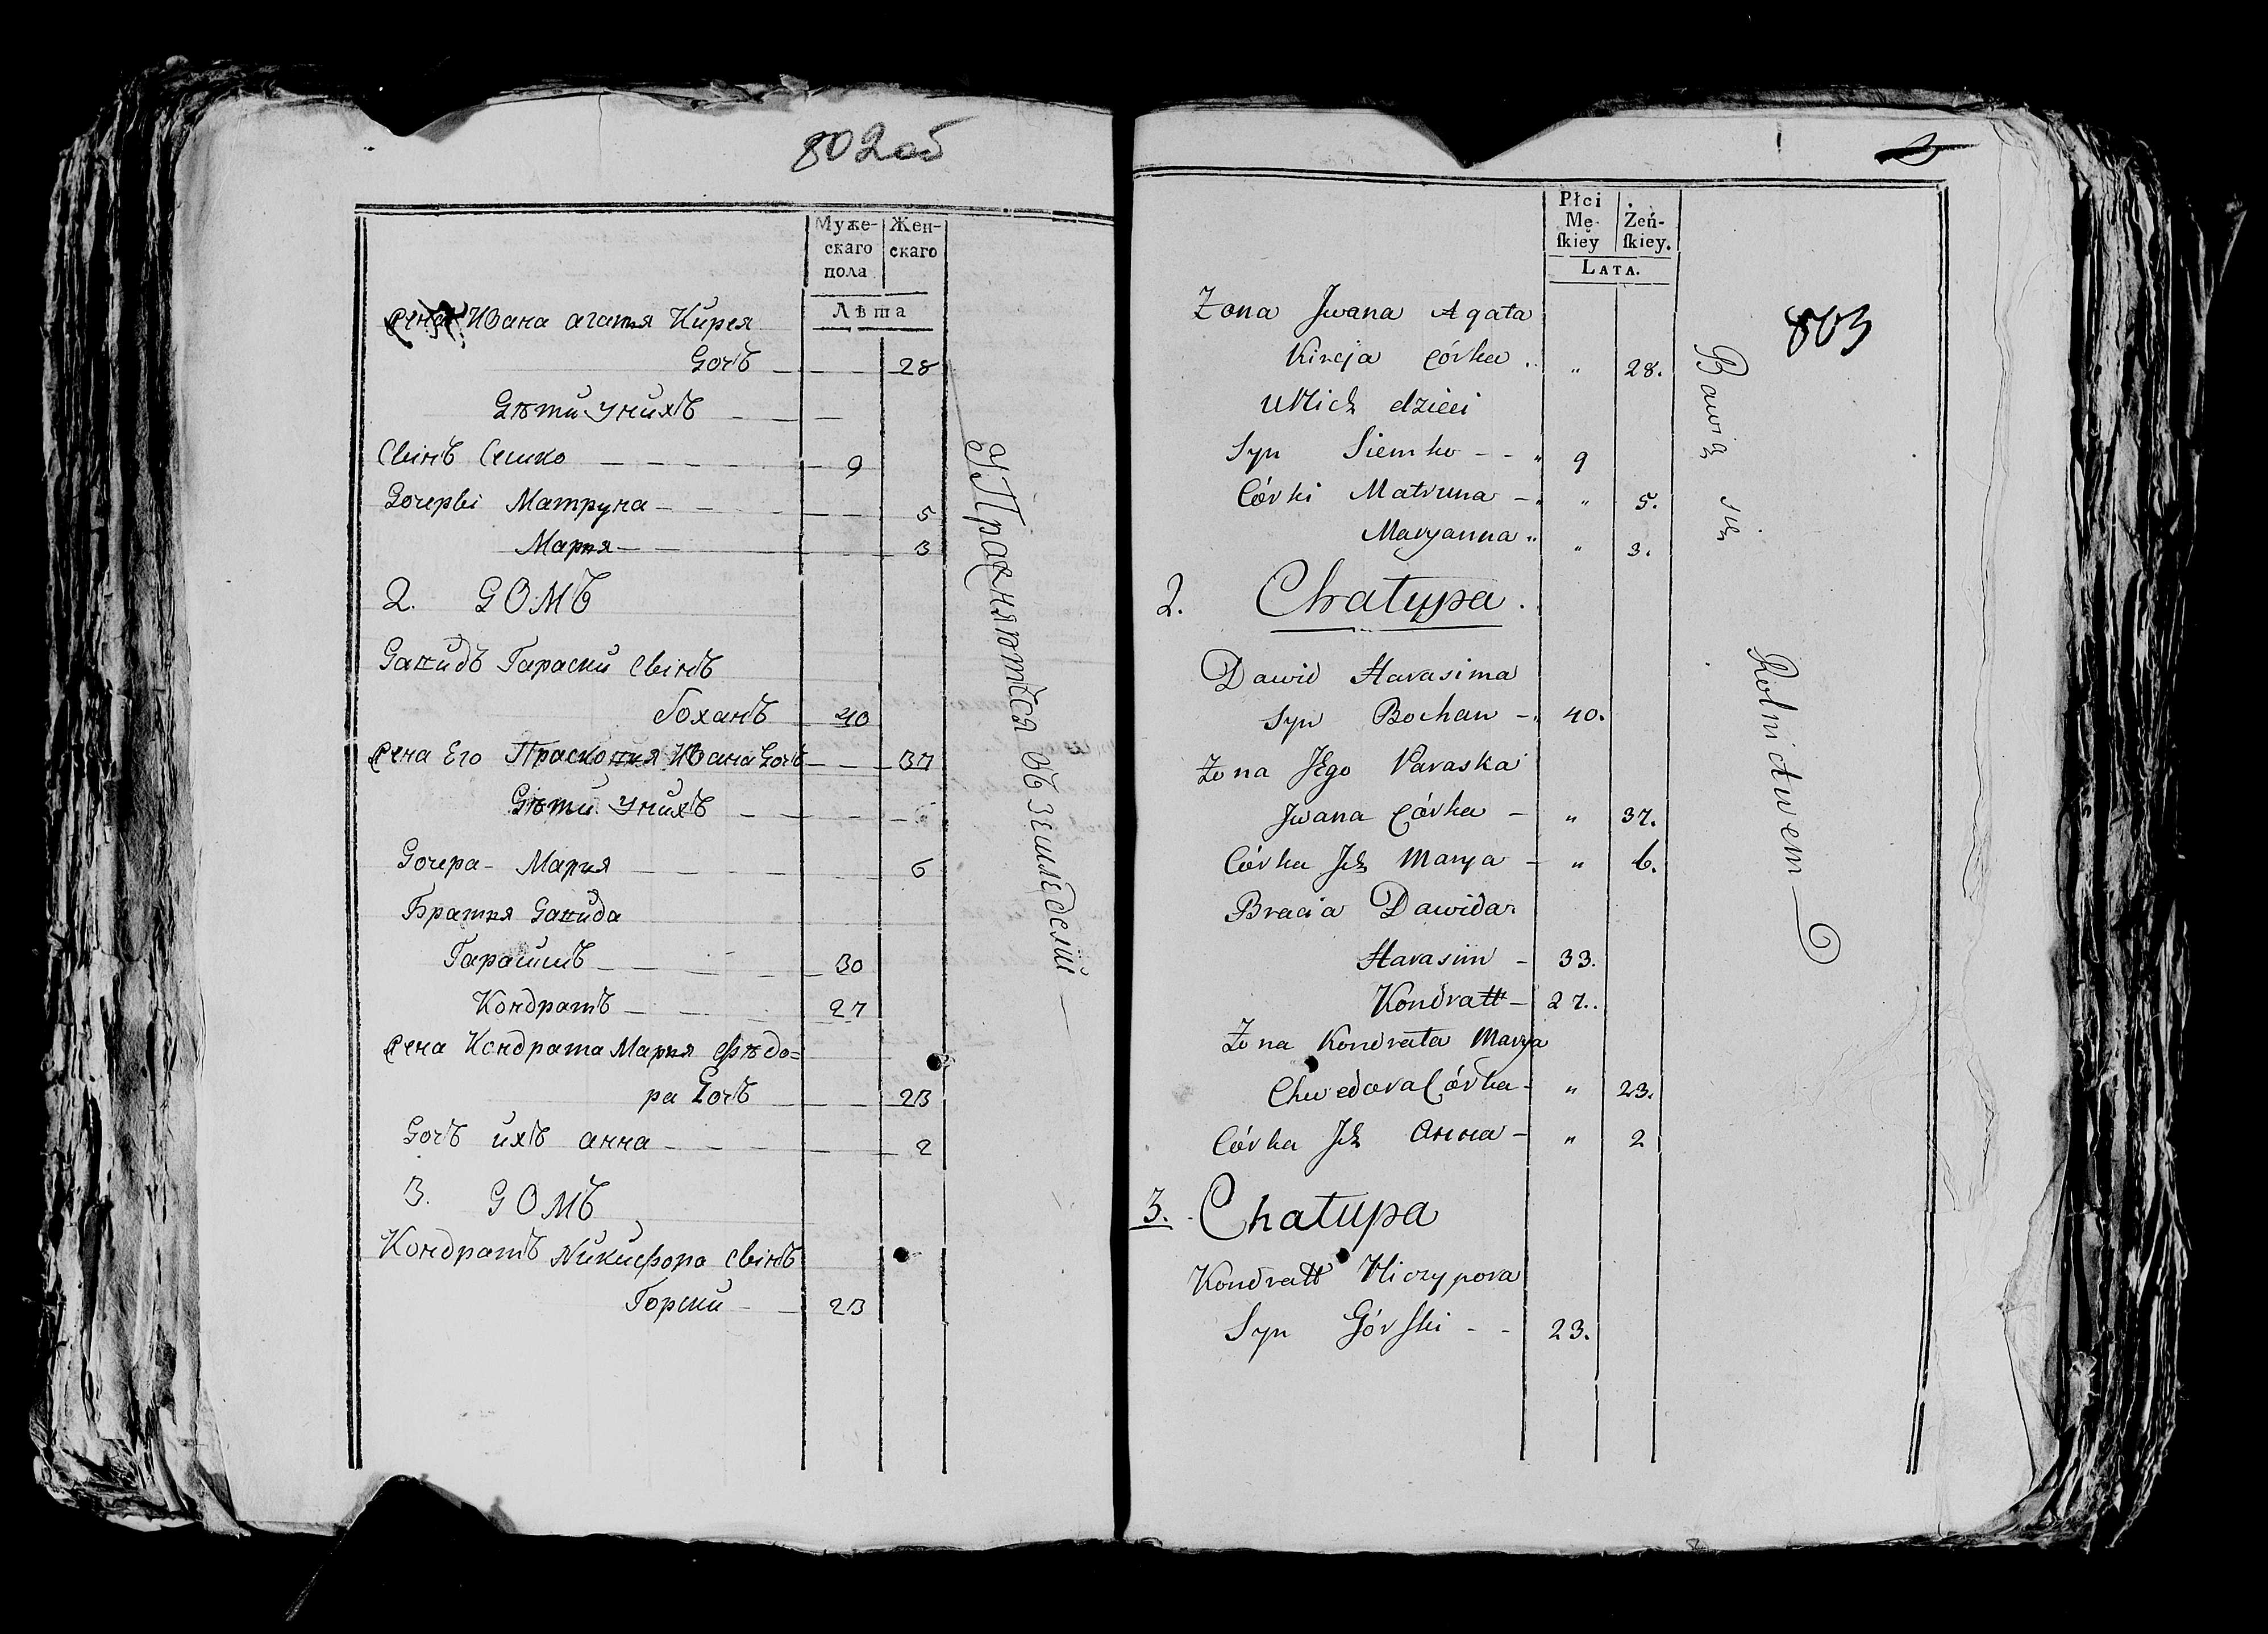 802об
Муже- Жен-
скаго скаго
пола
Лѣта
Жена Ивана агатя Кирея
Дочъ 28
Дѣти Унихъ
Сынъ Семко 9
Дочеры Матруна 5
Мария 3
2. ДОМЪ
Давидъ Гараски сынъ
Боханъ 40
Жена Его Прасковия Ивана Дочъ 37
Дѣти Унихъ
Дочера Мария 6
Братия Давида
Гарасимъ 30
Кондратъ 27
Жена Кондрата Мария Фѣдо=
ра Дочъ 23
Дочъ ихъ анна 2
3. ДОМЪ
Кондратъ Никифора сынъ
Горски 23
УПражняются въ земледелии
2
803
Płci
Mę- Żeń-
ſkiey ſkiey.
LATA.
Żona Jwana Agata
Kireja Córka " 28.
U Nich dzieci
Syn Siemko 9
Córki Matruna " 5.
Maryanna " 3.
2. Chałupa.
Dawid Harasima
Syn Bochan 40.
Żona JEgo Paraska
Jwana Córka " 37.
Córka Jch Marya " 6.
Bracia Dawida
Harasim 33.
Kondratt 27.
Żona Kondrata Marya
Chwedora Córka " 23.
Córka Jch Anna " 2
3. Chałupa
Kondratt Niczypora
Syn Górſki 23.
Bawią się Rolnictwem